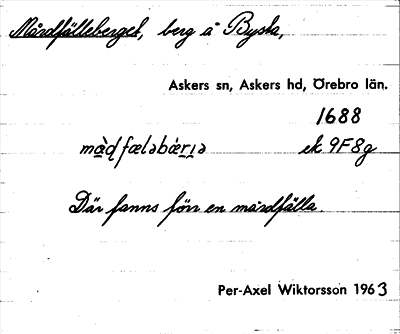 Mårdfälleberget, berg å Bysta,
Askers sn, Askers hd, Örebro län.
1688
ek 9F8g
Där fanns förr en mårdfälla.
Per-Axel Wiktorsson 1963